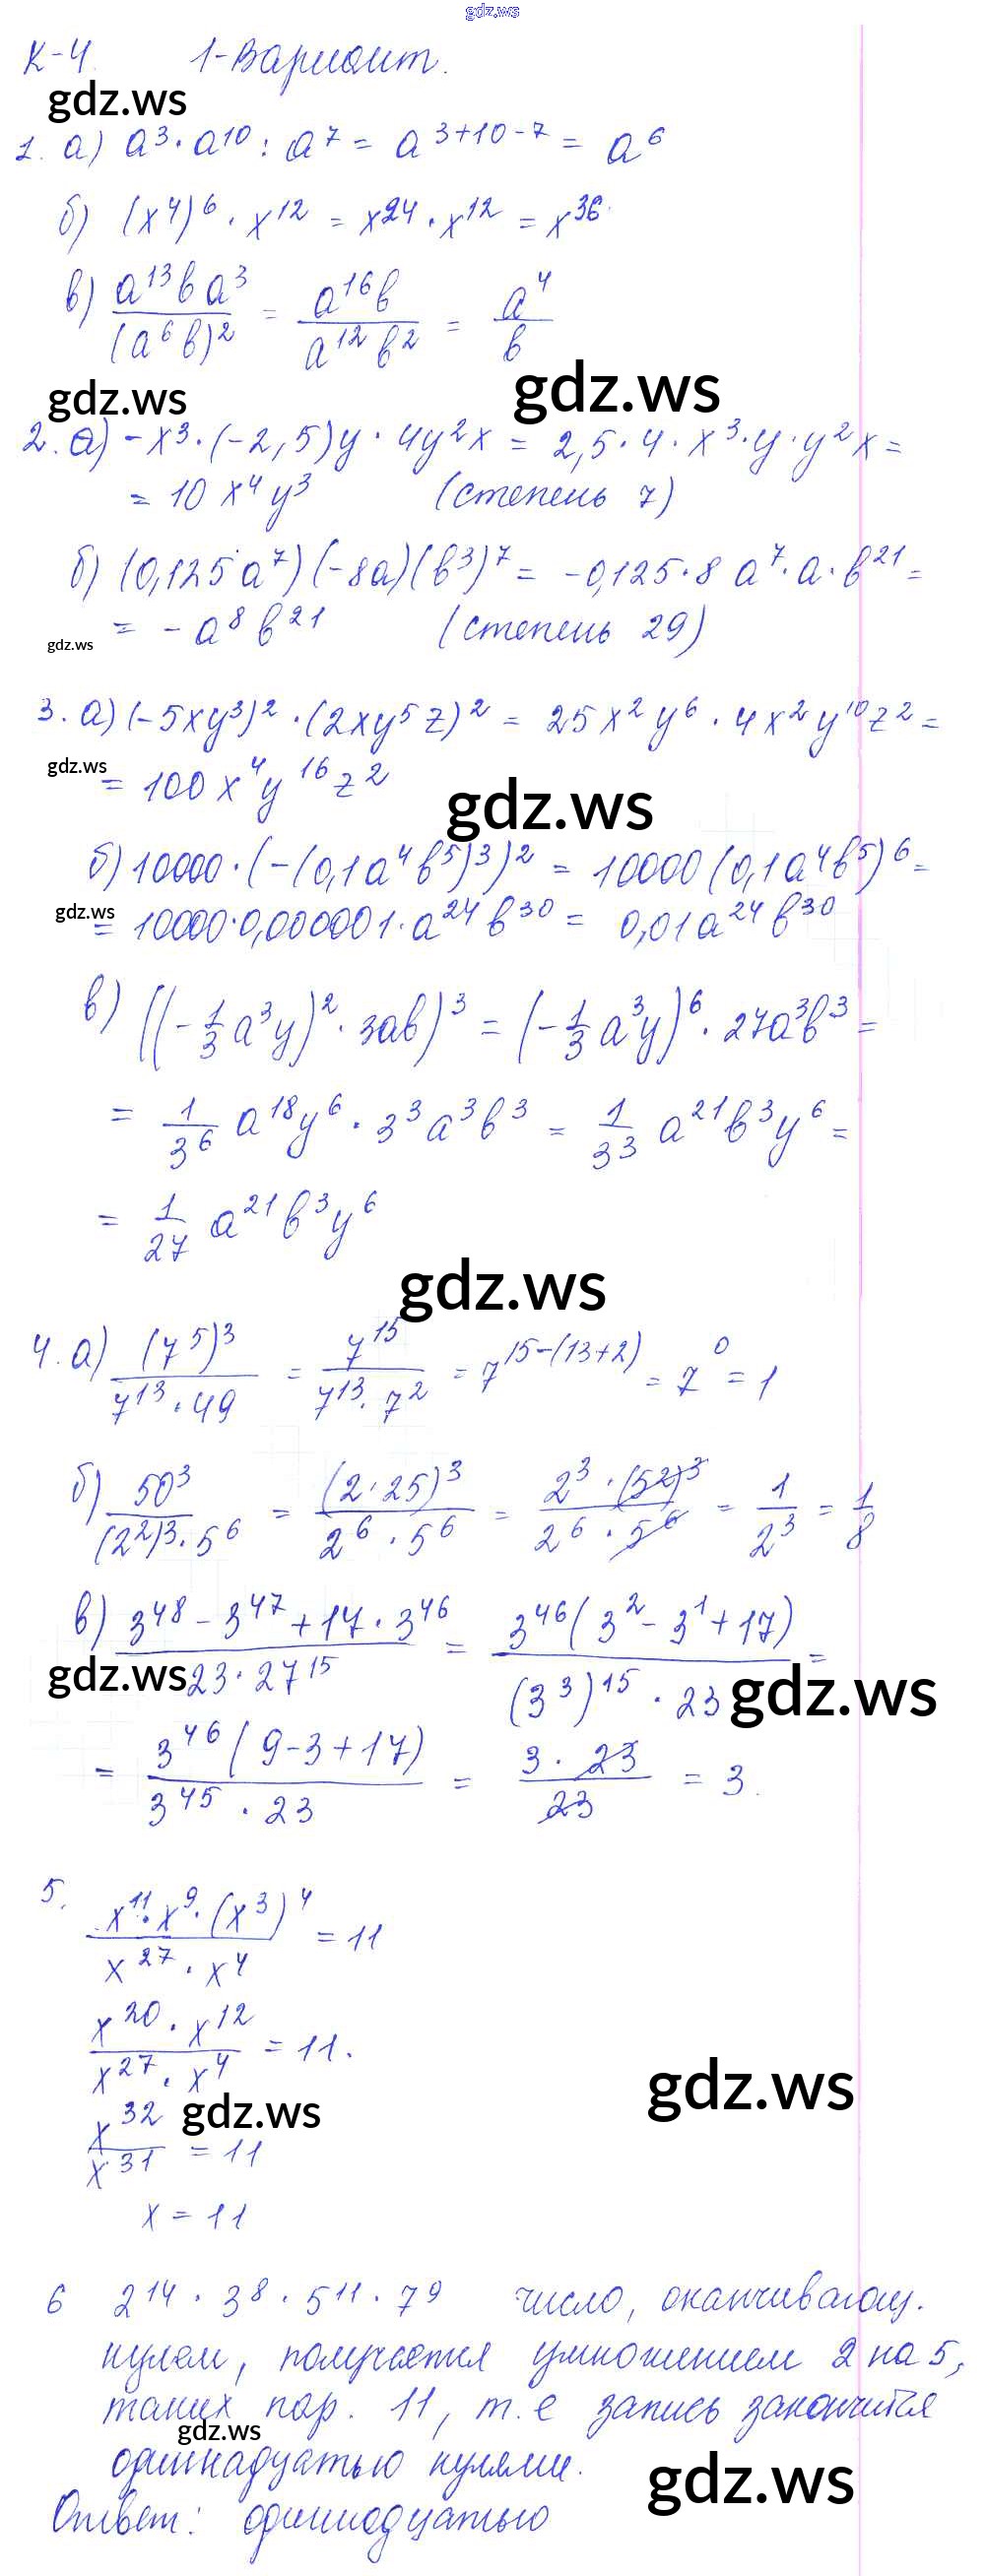 gdz.ws
К-4. 1-Вариант.
gdz.ws
1. а) a³ · a¹⁰ : a⁷ = a³⁺¹⁰⁻⁷ = a⁶
б) (x⁴)⁶ · x¹² = x²⁴ · x¹² = x³⁶
в) (a¹³ b a³)/((a⁶ b)²) = (a¹⁶b)/(a¹² b²) = a⁴/b
gdz.ws
gdz.ws
2. а) -x³ · (-2,5)y · 4y²x = 2,5 · 4 · x³ · y · y² x =
= 10 x⁴ y³ (степень 7)
б) (0,125 a⁷) (-8a) (b³)⁷ = -0,125 · 8 a⁷ · a · b²¹ =
= -a⁸ b²¹ (степень 29)
gdz.ws
3. а) (-5xy³)² · (2xy⁵z)² = 25x²y⁶ · 4x²y¹⁰z² =
gdz.ws
= 100 x⁴y¹⁶z²
gdz.ws
б) 10000 · (-(0,1a⁴b⁵)³)² = 10000 (0,1a⁴b⁵)⁶ =
gdz.ws
= 10000 · 0,000001 · a²⁴b³⁰ = 0,01a²⁴b³⁰
в) ((-1/3 a³y)² · 3ab)³ = (-1/3 a³y)⁶ · 27a³b³ =
= 1/3⁶ a¹⁸y⁶ · 3³a³b³ = 1/3³ a²¹b³y⁶ =
= 1/27 a²¹b³y⁶
gdz.ws
4. а) (7⁵)³/(7¹³ · 49) = 7¹⁵/(7¹³ · 7²) = 7¹⁵⁻⁽¹³⁺²⁾ = 7⁰ = 1
б) 50³/((2²)³ · 5⁶) = (2 · 25)³/(2⁶ · 5⁶) = (2³ · (5²)³)/(2⁶ · 5⁶) = 1/2³ = 1/8
в) (3⁴⁸ - 3⁴⁷ + 17 · 3⁴⁶)/(23 · 27¹⁵) = (3⁴⁶(3² - 3¹ + 17))/((3³)¹⁵ · 23) =
gdz.ws
gdz.ws
= (3⁴⁶(9 - 3 + 17))/(3⁴⁵ · 23) = (3 · 23)/23 = 3.
5. (x¹¹ · x⁹ · (x³)⁴)/(x²⁷ · x⁴) = 11
(x²⁰ · x¹²)/(x²⁷ · x⁴) = 11.
gdz.ws
x³²/x³¹ = 11
gdz.ws
x = 11
6 2¹⁴ · 3⁸ · 5¹¹ · 7⁹ число, оканчивающ.
нулем, получается умножением 2 на 5,
таких пар. 11, т.е запись закончится
gdz.ws
одиннадцатью нулями.
gdz.ws
Ответ: одиннадцатью